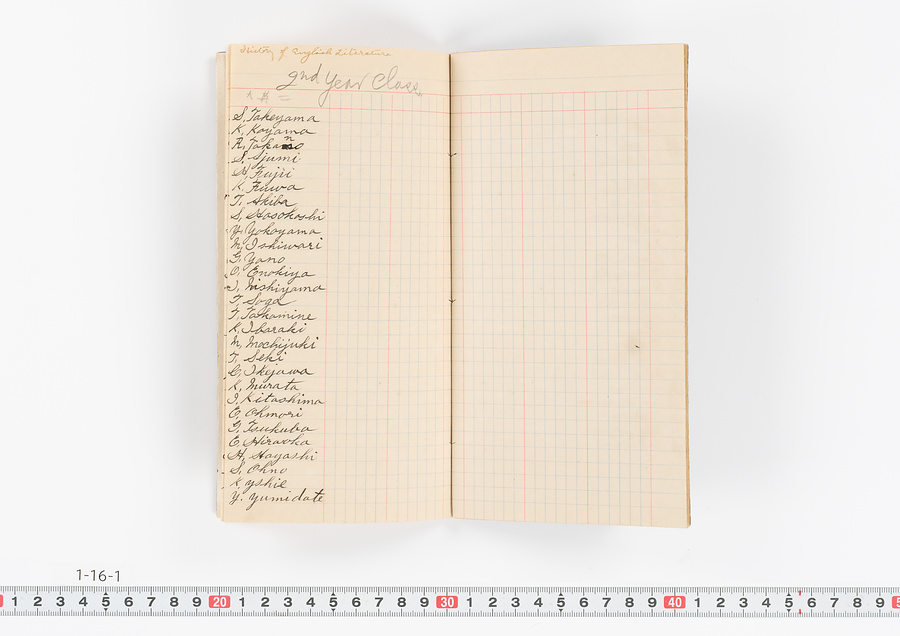 History of English Literature
2nd Year Class
S, Takeyama
K, Koyama
R, Takano
n
S, Ijumi
H, Fujii
K, Fuwa
T, Akiba
S, Hosokoshi
Y, Yokoyama
M, Ishiwari
G, Yano
O, Enokiya
I, Nishiyama
T, Soga
T, Takamine
K, Ibaraki
M, Mochijuki
T, Seki
C, Ikejawa
K, Murata
I, Kitashima
E, Ohmori
G, Tsukuba
E, Hiraoka
H, Hayashi
S, Ohno
K, yshie
Y. yumidate
1-16-1
1 2 3 4 5 6 7 8 9 20 1 2 3 4 5 6 7 8 9 30 1 2 3 4 5 6 7 8 9 40 1 2 3 4 5 6 7 8 9